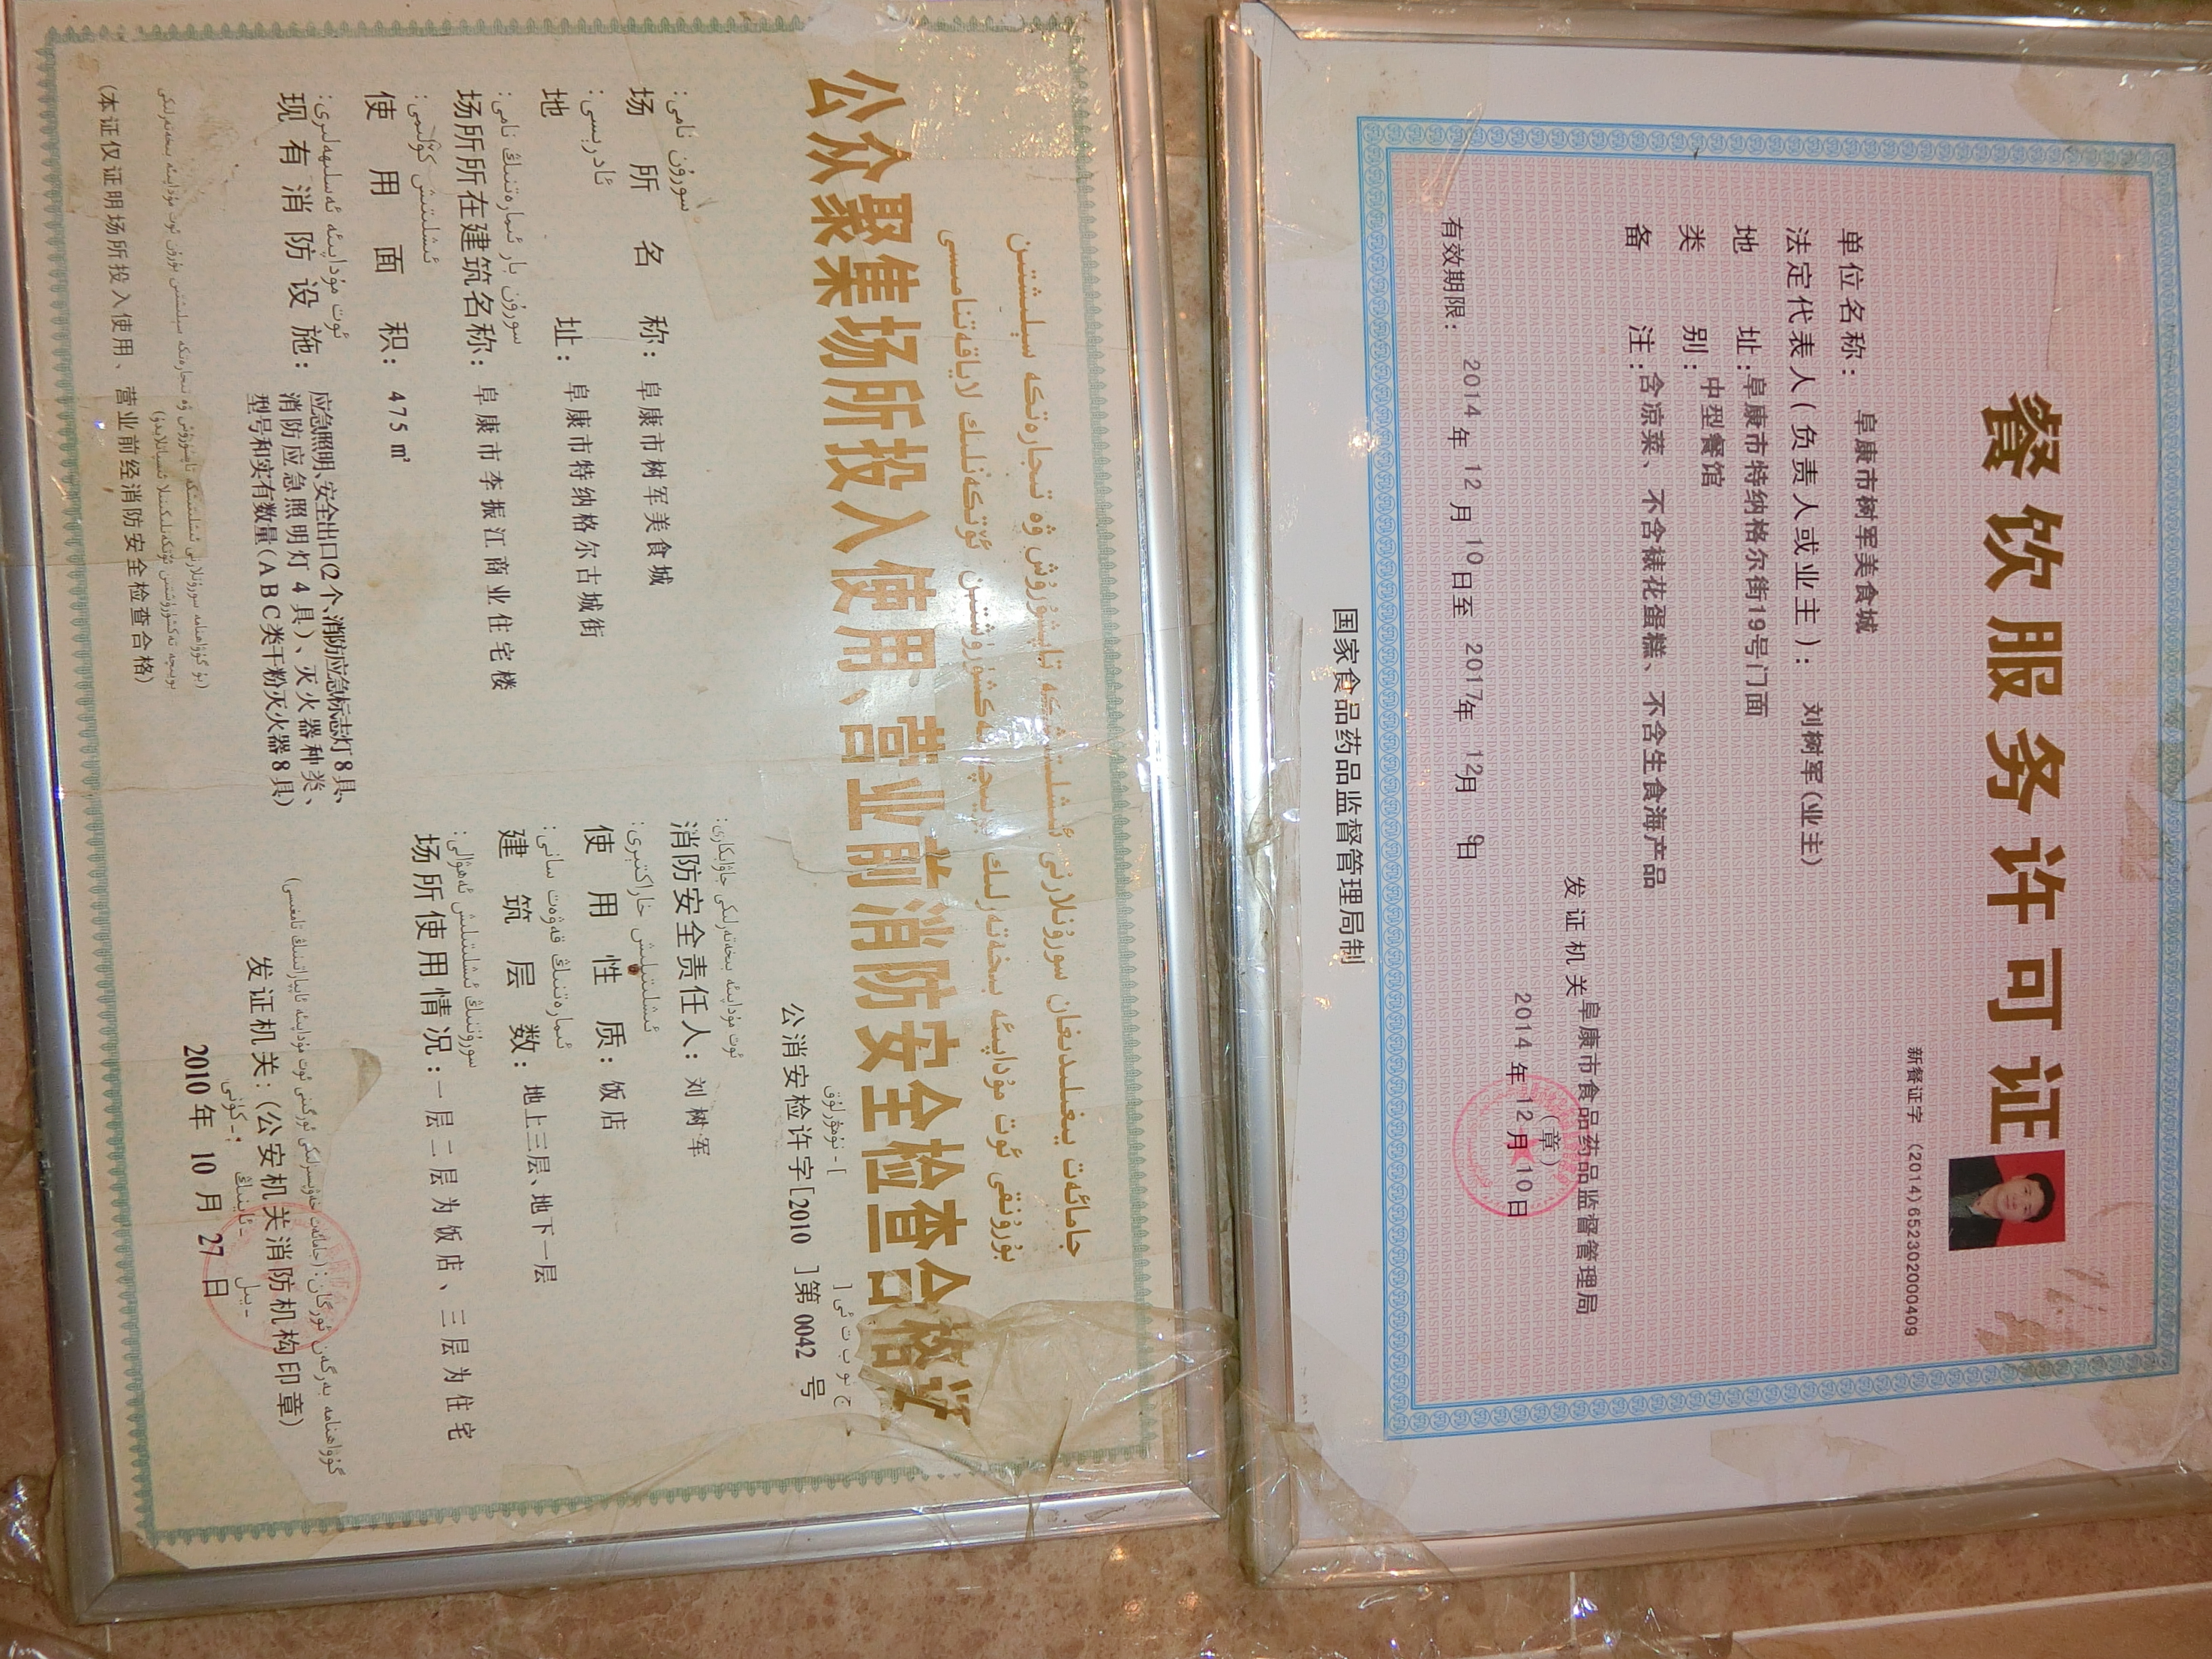 餐饮服务许可证
新餐证字 (2014)652302000409
单位名称： 阜康市树军美食城
法定代表人(负责人或业主)： 刘树军(业主)
地 址：阜康市特纳格尔街19号门面
类 别：中型餐馆
备 注：含凉菜、不含裱花蛋糕、不含生食海产品
发证机关阜康市食品药品监督管理局
（章）
2014 年 12 月 10 日
有效期限： 2014 年 12 月 10 日至 2017年 12月 9日
国家食品药品监督管理局制
公众聚集场所投入使用、营业前消防安全检查合格证
公消安检许字[2010 ]第 0042 号
سورۇن نامى:
场所名称：阜康市树军美食城
ئوت مۇداپىئە بىخەتەرلىكى جاۋابكارى:
消防安全责任人：刘树军
ئادرېسى:
地 址：阜康市特纳格尔古城街
ئىشلىتىش خاراكتېرى:
使用性质：饭店
سورۇن بار ئىمارەتنىڭ نامى:
场所所在建筑名称：阜康市李振江商业住宅楼
ئىمارەتنىڭ قەۋەت سانى:
建筑层数：地上三层、地下一层
ئىشلىتىش كۆلىمى:
使用面积：475㎡
سورۇننىڭ ئىشلىتىلىش ئەھۋالى:
场所使用情况：一层二层为饭店、三层为住宅
ئوت مۇداپىئە ئەسلىھەلىرى:
现有消防设施：应急照明、安全出口(2个、消防应急标志灯8具、
消防应急照明灯4具)、灭火器种类、
型号和实有数量(ABC类干粉灭火器8具)
发证机关：(公安机关消防机构印章)
2010 年 10 月 27 日
(本证仅证明场所投入使用、营业前经消防安全检查合格)